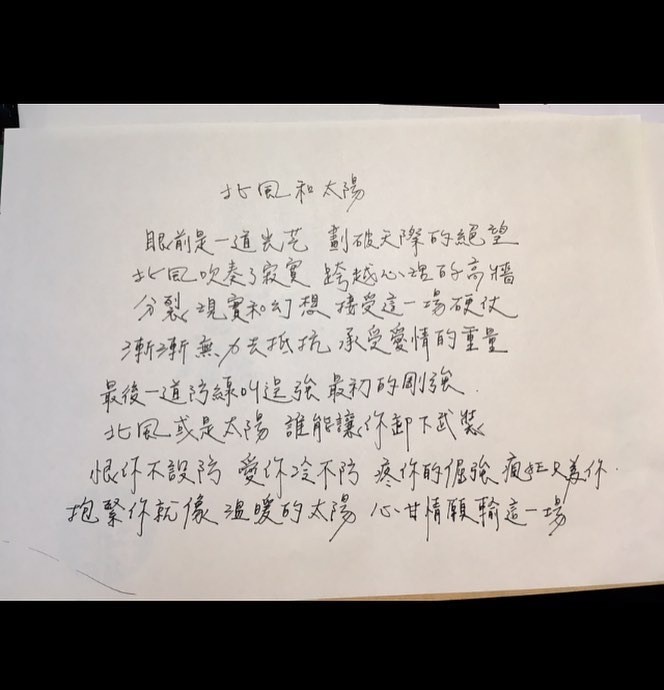 北風和太陽
眼前是一道光芒 劃破天際的絕望
北風吹奏了寂寞 跨越心理的高牆
分裂現實和幻想 接受這一場硬仗
漸漸無力去抵抗 承受愛情的重量
最後一道防線叫逞強 最初的剛強.
北風或是太陽 誰能讓你卸下武裝
恨你不設防 愛你冷不防 疼你的倔強 瘋狂只為你.
抱緊你就像 溫暖的太陽 心甘情願輸這一場